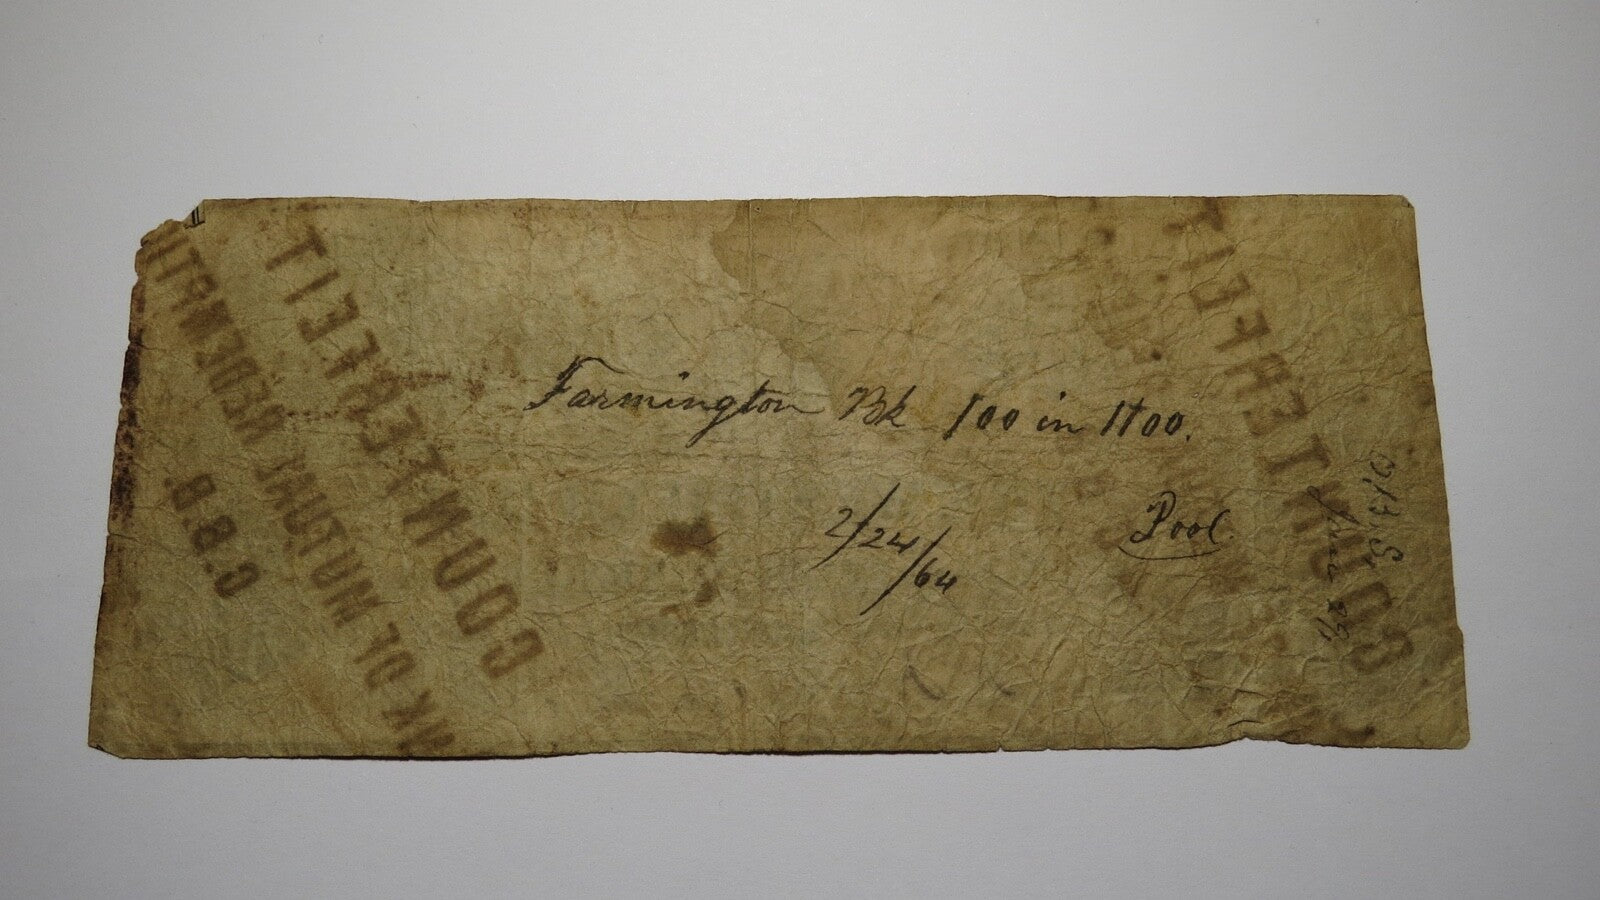 Farmington Bk 100 in 1400.
2/24/64
Pool
COUNTERFEIT
BANK OF MUTUAL REDEMPTION
C. B. B.
COUNTERFEIT